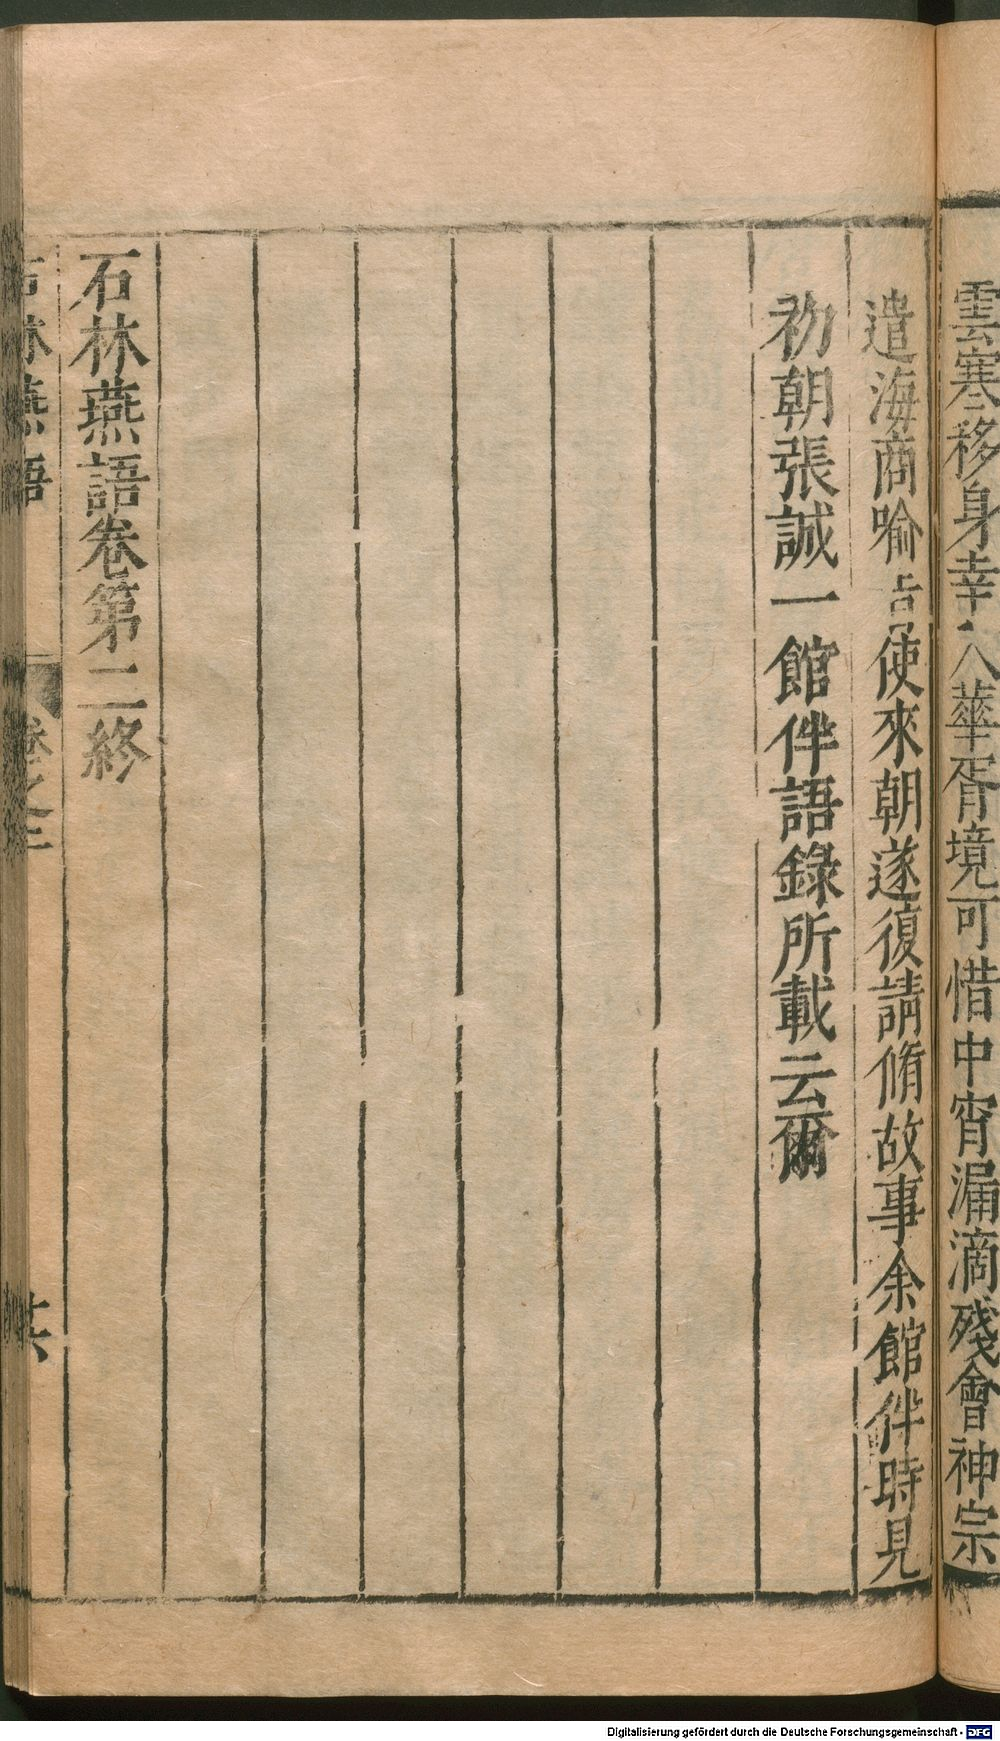 雲寒移身幸入華胥境可惜中宵漏滴殘會神宗
遣海商喻旨使來朝遂復請脩故事余館伴時見
初朝張誠一館伴語錄所載云爾
石林燕語卷第二終
石林燕語
卷之二
十六
Digitalisierung gefördert durch die Deutsche Forschungsgemeinschaft - DFG